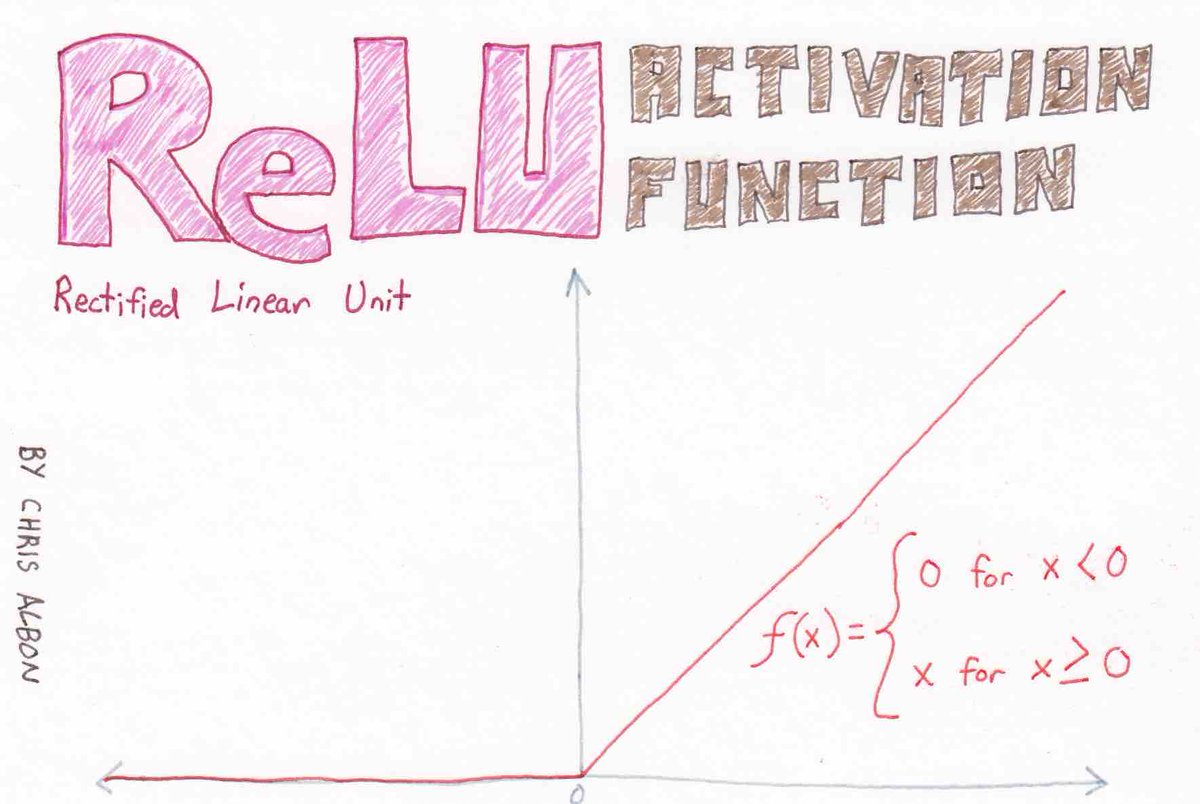 ReLU ACTIVATION
FUNCTION
Rectified Linear Unit
BY CHRIS ALBON
f(x) = { 0 for x < 0
x for x ≥ 0
0